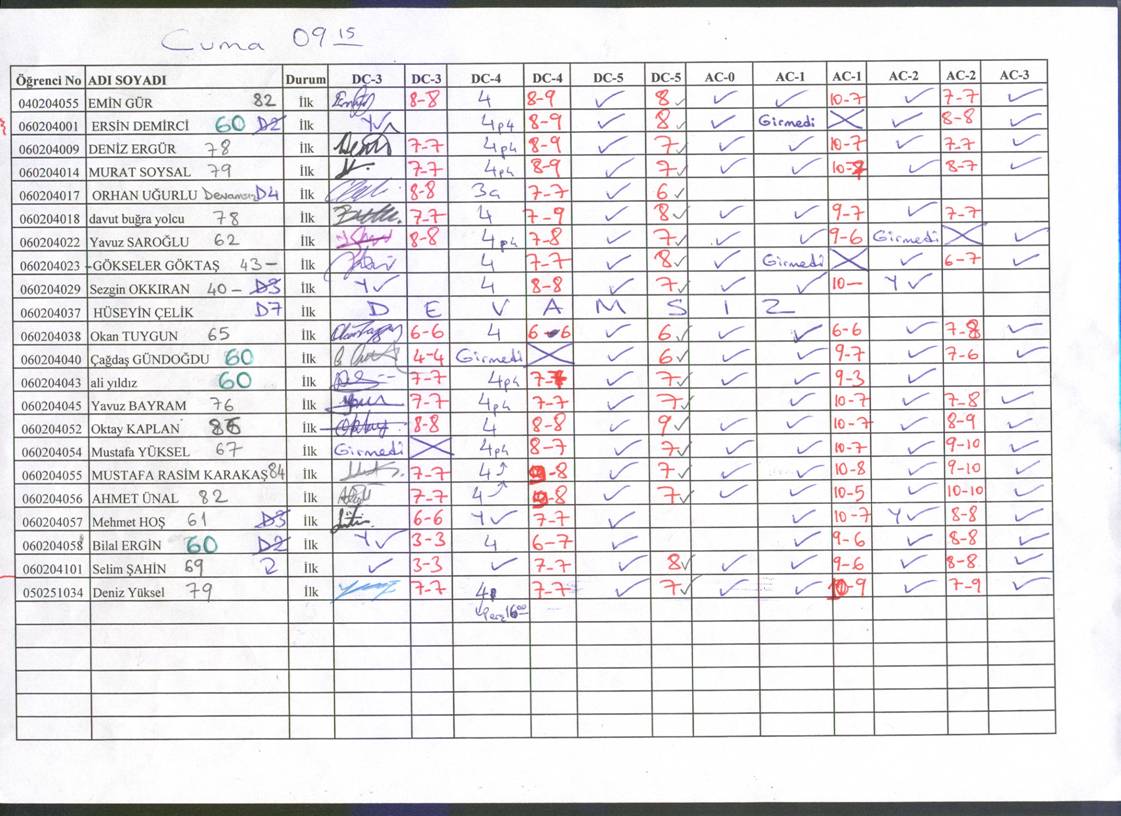 Cuma 09 15
Öğrenci No ADI SOYADI Durum DC-3 DC-3 DC-4 DC-4 DC-5 DC-5 AC-0 AC-1 AC-1 AC-2 AC-2 AC-3
040204055 EMİN GÜR 82 İlk 8-8 4 8-9 ✓ 8✓ ✓ ✓ 10-7 ✓ 7-7 ✓
060204001 ERSİN DEMİRCİ 60 D2 İlk Y✓ 4p4 8-9 ✓ 8✓ ✓ Girmedi X ✓ 8-8 ✓
060204009 DENİZ ERGÜR 78 İlk 7-7 4p4 8-9 ✓ 7✓ ✓ ✓ 10-7 ✓ 7-7 ✓
060204014 MURAT SOYSAL 79 İlk 7-7 4p4 8-9 ✓ 7✓ ✓ ✓ ✓ 8-7 ✓
060204017 ORHAN UĞURLU D4 İlk 8-8 3a 7-7 ✓ 6✓
060204018 davut buğra yolcu 78 İlk 7-7 4 7-9 ✓ 8✓ ✓ ✓ 9-7 ✓ 7-7
060204022 Yavuz SAROĞLU 62 İlk 8-8 4p4 7-8 ✓ 7✓ ✓ ✓ 9-6 Girmedi X ✓
060204023 -GÖKSELER GÖKTAŞ 43- İlk 4 7-7 ✓ 8✓ ✓ Girmedi X ✓ 6-7 ✓
060204029 Sezgin OKKIRAN 40- D3 İlk Y✓ 4 8-8 ✓ 7✓ ✓ ✓ 10— Y✓
060204037 HÜSEYİN ÇELİK D7 İlk D E V A M S I Z
060204038 Okan TUYGUN 65 İlk 6-6 4 6-6 ✓ 6✓ ✓ ✓ 6-6 ✓ 7-8 ✓
060204040 Çağdaş GÜNDOĞDU 60 İlk 4-4 Girmedi X ✓ 6✓ ✓ ✓ 9-7 ✓ 7-6 ✓
060204043 ali yıldız 60 İlk 7-7 4p4 7-7 ✓ 7✓ ✓ ✓ 9-3 ✓
060204045 Yavuz BAYRAM 76 İlk 7-7 4p4 7-7 ✓ 7✓ ✓ 10-7 ✓ 7-8 ✓
060204052 Oktay KAPLAN İlk 8-8 4 8-8 ✓ 9✓ ✓ ✓ 10-7 ✓ 8-9 ✓
060204054 Mustafa YÜKSEL 67 İlk Girmedi X 4p4 8-7 ✓ 7✓ ✓ ✓ 10-7 ✓ 9-10 ✓
060204055 MUSTAFA RASİM KARAKAŞ 84 İlk 7-7 4 9-8 ✓ 7✓ ✓ ✓ 10-8 ✓ 9-10 ✓
060204056 AHMET ÜNAL 82 İlk 7-7 4 9-8 ✓ 7✓ ✓ ✓ 10-5 ✓ 10-10 ✓
060204057 Mehmet HOŞ 61 D3 İlk 6-6 Y✓ 7-7 ✓ ✓ 10-7 Y✓ 8-8 ✓
060204058 Bilal ERGİN 60 D2 İlk Y✓ 3-3 4 6-7 ✓ ✓ 9-6 ✓ 8-8 ✓
060204101 Selim ŞAHİN 69 2 İlk ✓ 3-3 ✓ 7-7 ✓ 8✓ ✓ ✓ 9-6 ✓ 8-8 ✓
050251034 Deniz Yüksel 79 İlk 7-7 4 7-7 ✓ 7✓ ✓ ✓ 10-9 ✓ 7-9 ✓